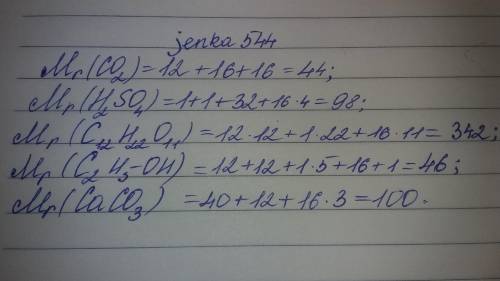 jenka 544
Mr(CO₂)=12+16+16=44;
Mr(H₂SO₄)=1+1+32+16·4=98;
Mr(C₁₂H₂₂O₁₁)=12·12+1·22+16·11=342;
Mr(C₂H₅-OH)=12+12+1·5+16+1=46;
Mr(CaCO₃)=40+12+16·3=100.